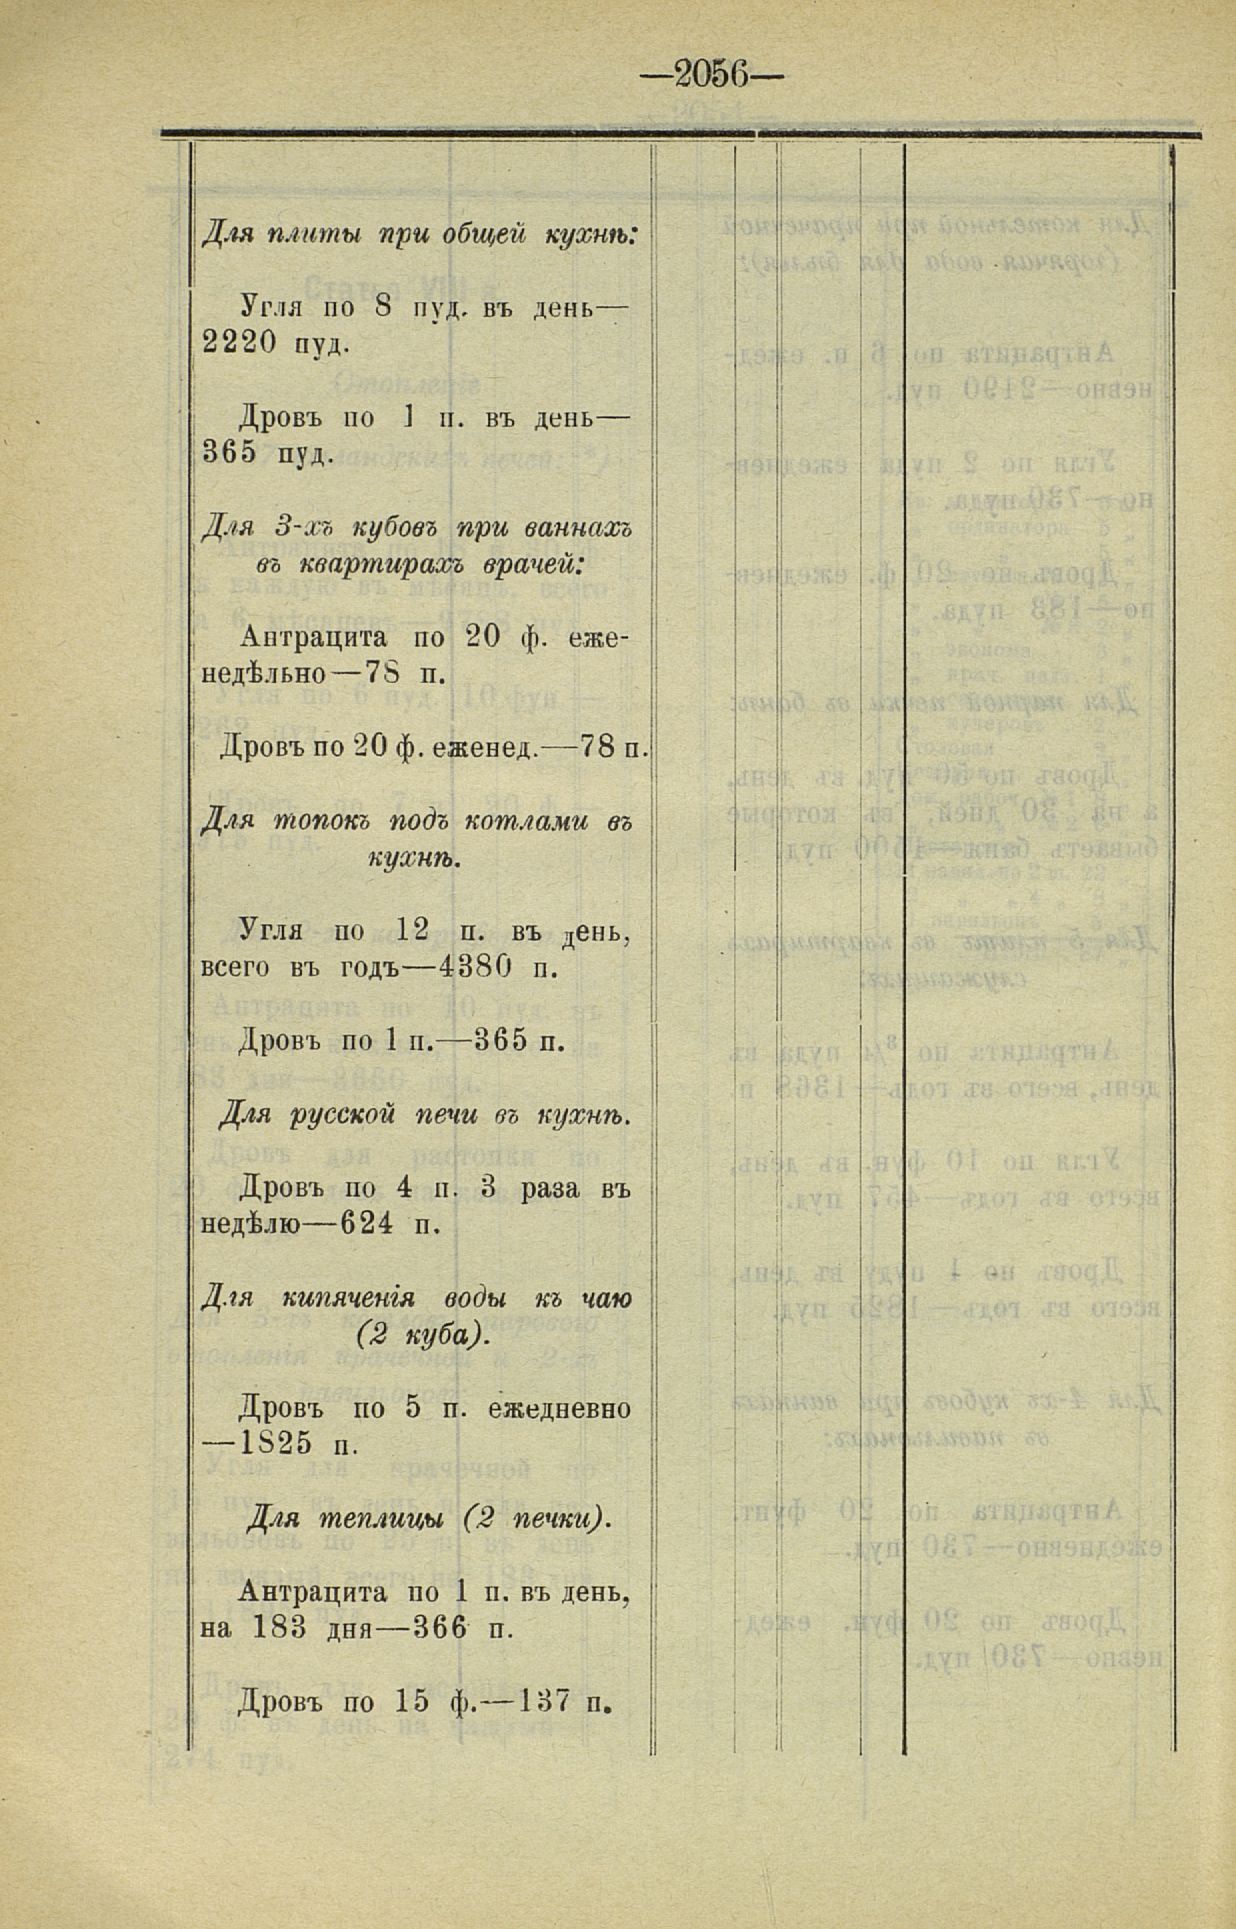 —2056—
Для плиты при общей кухнѣ:
Угля по 8 пуд. въ день—
2220 пуд.
Дровъ по 1 п. въ день—
365 пуд.
Для 3-хъ кубовъ при ваннахъ
въ квартирахъ врачей:
Антрацита по 20 ф. еже-
недѣльно—78 п.
Дровъ по 20 ф. еженед.—78 п.
Для топокъ подъ котлами въ
кухнѣ.
Угля по 12 п. въ день,
всего въ годъ—4380 п.
Дровъ по 1 п.—365 п.
Для русской печи въ кухнѣ.
Дровъ по 4 п. 3 раза въ
недѣлю—624 п.
Для кипяченія воды къ чаю
(2 куба).
Дровъ по 5 п. ежедневно
—1825 п.
Для теплицы (2 печки).
Антрацита по 1 п. въ день,
на 183 дня—366 п.
Дровъ по 15 ф.—137 п.